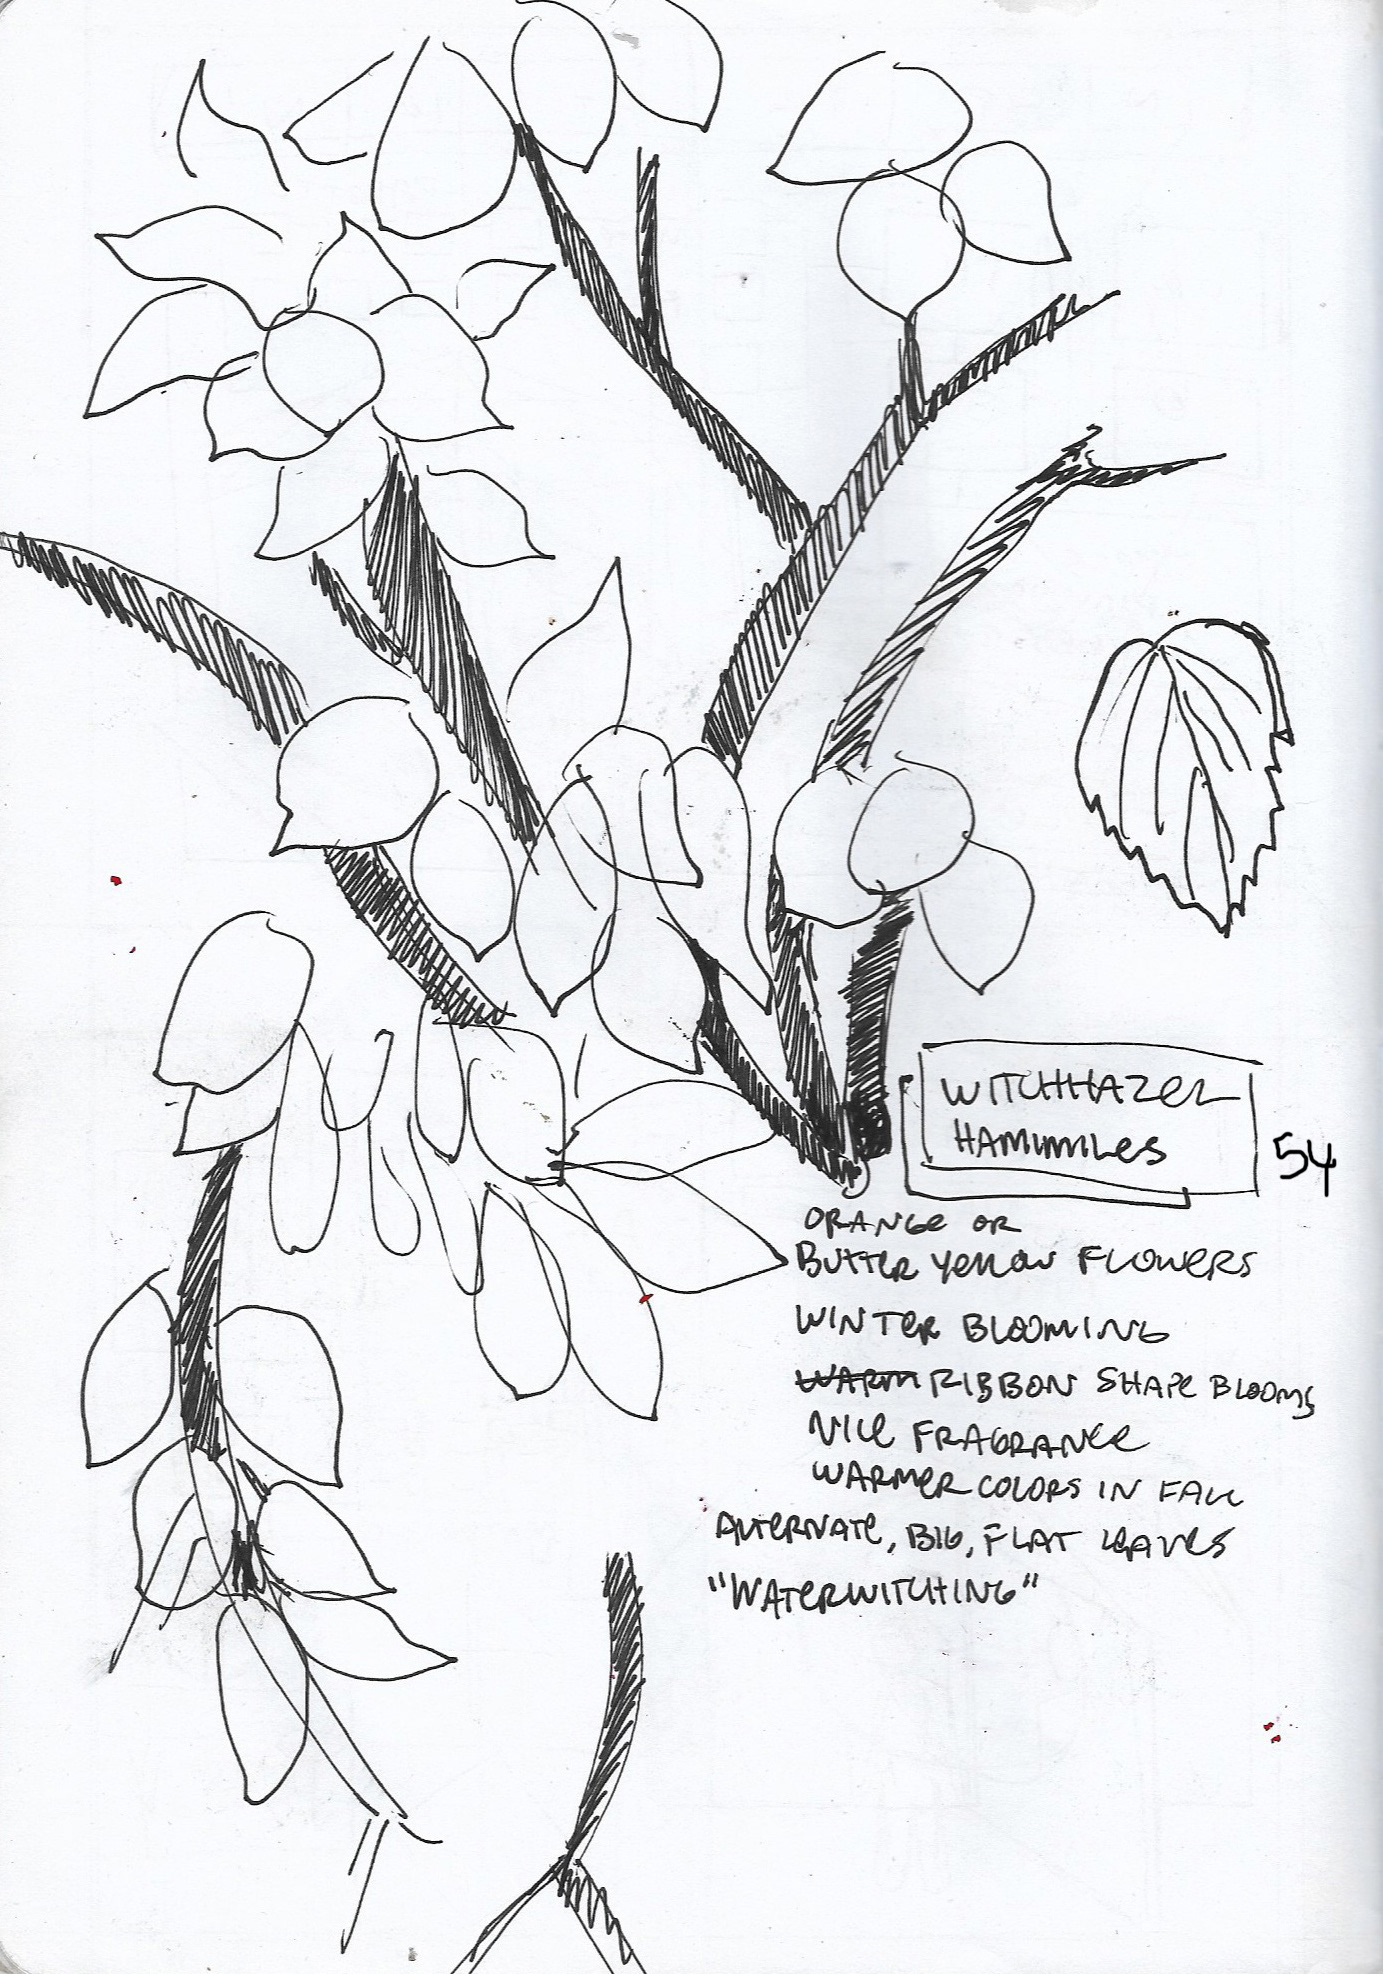 WITCHHAZEL
HAMIMILES
54
ORANGE OR
BUTTER YELLOW FLOWERS
WINTER BLOOMING
WARM RIBBON SHAPE BLOOMS
NICE FRAGRANCE
WARMER COLORS IN FALL
ALTERNATE, BIG, FLAT LEAVES
"WATERWITCHING"